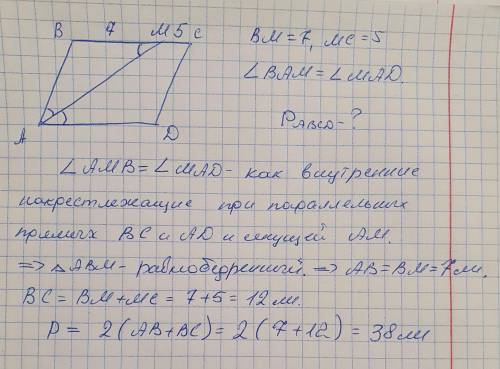 B 7 M 5 C
A D
BM = 7, MC = 5
∠BAM = ∠MAD.
P ABCD - ?
∠AMB = ∠MAD - как внутренние
накрестлежащие при параллельных
прямых BC и AD и секущей AM.
=> △ABM - равнобедренный. => AB = BM = 7 см.
BC = BM + MC = 7 + 5 = 12 см.
P = 2(AB + BC) = 2(7 + 12) = 38 см